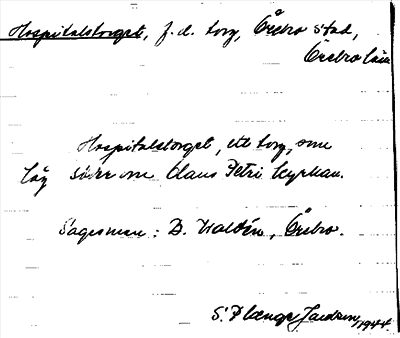 Hospitalstorget, f.d. torg, Örebro stad,
Örebro län
Hospitalstorget, ett torg, som
låg söder om Olaus Petri kyrkan.
Sagesman: D. Haldén, Örebro.
S. Plaenge Jacobson, 1944.